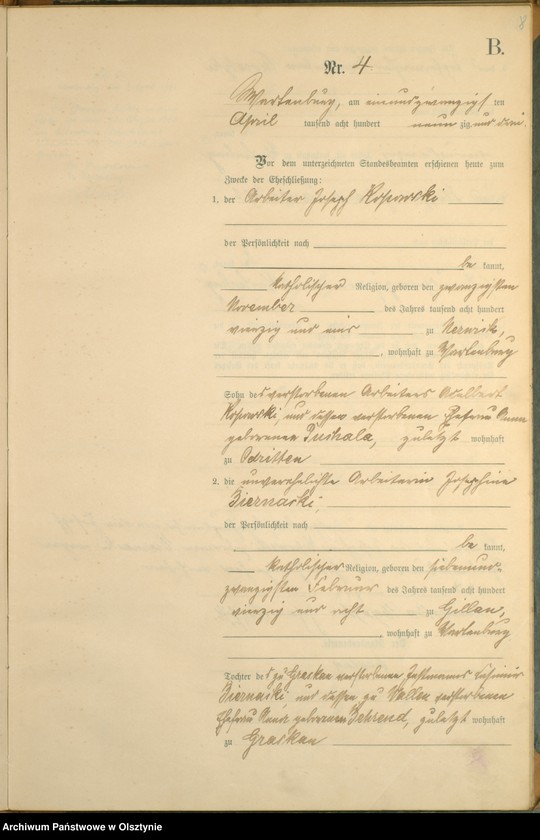 8
B.
Nr. 4.
Wartenburg, am einundzwanzigsten
April tausend acht hundert neunzig und drei.
Vor dem unterzeichneten Standesbeamten erschienen heute zum
Zwecke der Eheschließung:
1. der Arbeiter Joseph
der Persönlichkeit nach
be kannt,
katholischer Religion, geboren den zwanzigsten
November des Jahres tausend acht hundert
vierzig und eins zu
, wohnhaft zu Wartenburg
Sohn des verstorbenen Arbeiters Adalbert
und dessen verstorbenen Ehefrau Anna
geborenen zuletzt wohnhaft
zu Odritten
2. die unverehelichte Arbeiterin Josephine
Biernacki,
der Persönlichkeit nach
be kannt,
katholischer Religion, geboren den siebenund-
zwanzigsten Februar des Jahres tausend acht hundert
vierzig und acht zu Gillau,
, wohnhaft zu Wartenburg
Tochter des zu Graskau verstorbenen Instmannes Casimir
Biernacki und dessen zu Wallen verstorbenen
Ehefrau geborenen Behrend, zuletzt wohnhaft
zu Graskau
Archiwum Państwowe w Olsztynie